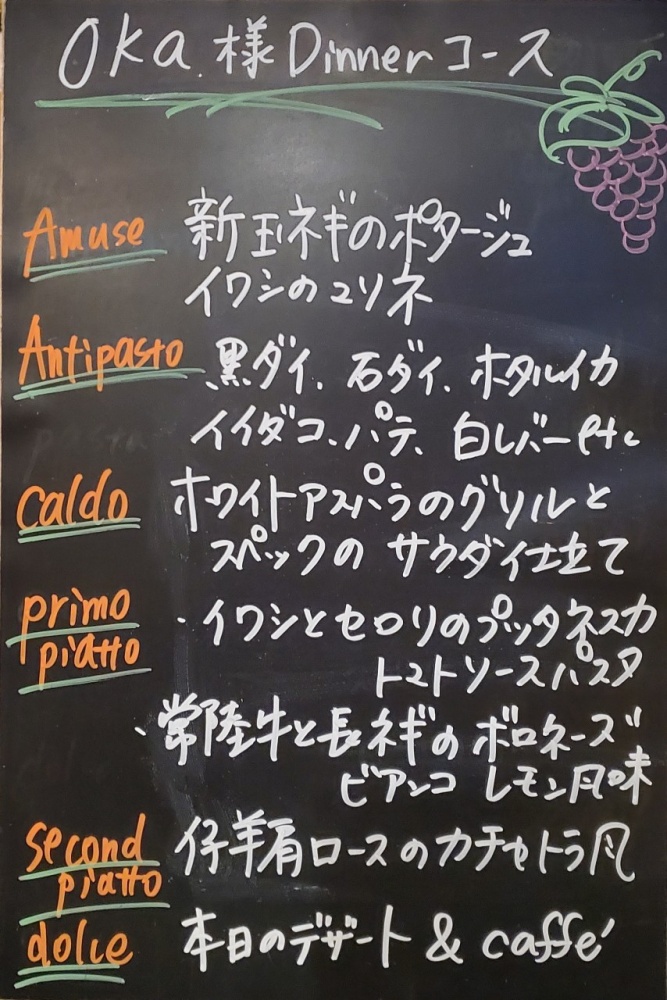 Oka.様 Dinnerコース
Amuse 新玉ネギのポタージュ
イワシのコリネ
Antipasto 黒ダイ、石ダイ、ホタルイカ
イイダコ、パテ、白レバーetc
caldo ホワイトアスパラのグリルと
スペックの サウダイ仕立て
primo ・イワシとセロリのプッタネスカ
piatto トマトソースパスタ
・常陸牛と長ネギのボロネーズ
ビアンコ レモン風味
second 仔羊肩ロースのカチャトラ風
piatto
dolce 本日のデザート & caffé